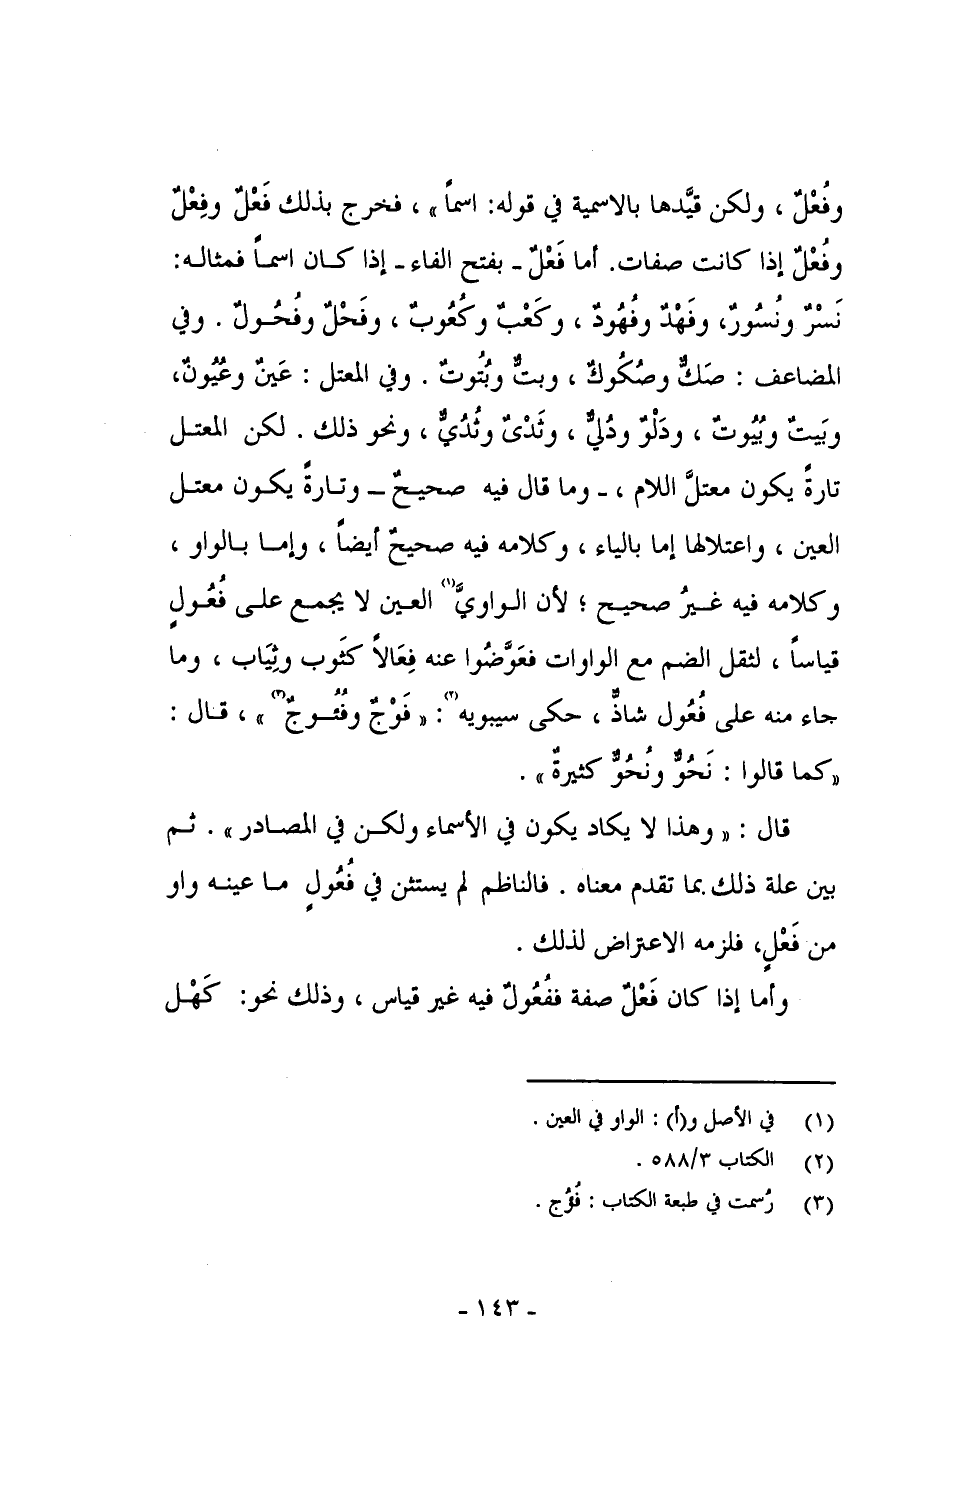 وفُعْلٌ ، ولكن قيَّدها بالاسمية في قوله: اسماً » ، فخرج بذلك فَعْلٌ وفِعْلٌ
وفُعْلٌ إذا كانت صفات. أما فَعْلٌ ـ بفتح الفاء ـ إذا كان اسماً فمثاله:
نَسْرٌ ونُسُورٌ، وفَهْدٌ وفُهُودٌ ، وكَعْبٌ وكُعُوبٌ ، وفَحْلٌ وفُحُولٌ . وفي
المضاعف : صَكٌّ وصُكُوكٌ ، وبتٌّ وبُتُوتٌ . وفي المعتل : عَينٌ وعُيُونٌ،
وبَيتٌ وبُيُوتٌ ، ودَلْوٌ ودُلِيٌّ ، وثَدْىٌ وثُدُيٌّ ، ونحو ذلك . لكن المعتل
تارةً يكون معتلَّ اللام ، ـ وما قال فيه صحيحٌ ـ وتارةً يكون معتل
العين ، واعتلالها إما بالياء ، وكلامه فيه صحيحٌ أيضاً ، وإما بالواو ،
وكلامه فيه غيرُ صحيح ؛ لأن الواويَّ(١) العين لا يجمع على فُعُولٍ
قياساً ، لثقل الضم مع الواوات فعَوَّضُوا عنه فِعَالاً كثَوب وثِيَاب ، وما
جاء منه على فُعُول شاذٌّ ، حكى سيبويه(٢): « فَوْجٌ وفُئُوجٌ(٣) » ، قال :
«كما قالوا : نَحُوٌّ ونُحُوٌّ كثيرةٌ» .
قال : « وهذا لا يكاد يكون في الأسماء ولكن في المصادر» . ثم
بين علة ذلك بما تقدم معناه . فالناظم لم يستثن في فُعُولٍ ما عينه واو
من فَعْلٍ، فلزمه الاعتراض لذلك .
وأما إذا كان فَعْلٌ صفة ففُعُولٌ فيه غير قياس ، وذلك نحو: كَهْل
(١) في الأصل و(أ) : الواو في العين .
(٢) الكتاب ٥٨٨/٣ .
(٣) رُسمت في طبعة الكتاب : فُؤُج .
ـ ١٤٣ ـ